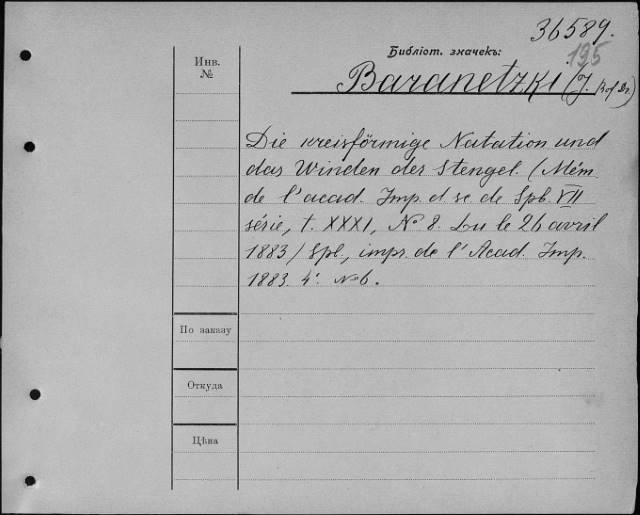 36589.
Библіот. значекъ:
195
Инв.
№
Baranetzki (J. Prof Dr.)
Die kreisförmige Nutation und
das Winden der Stengel. (Mém
de l'acad. Imp. d. sc. de Spb. VII
série, t. XXXI, № 8. Lu le 26 avril
1883) Spb., impr. de l'Acad. Imp.
1883. 4°. №6.
По заказу
Откуда
Цѣна